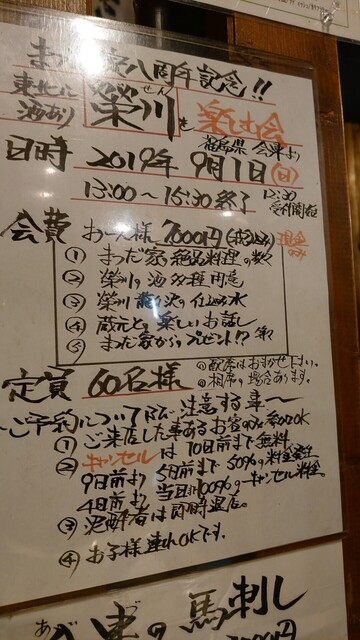 まつだ家八周年記念!!
東北に
酒あり
榮川
せん
を
楽しむ会
福島県 会津より
日時 2019年 9月1日(日)
13:00〜15:30終了
12:30
受付開始
会費 お一人様 7,000円(税込み) 現金のみ
① まつだ家 絶品料理の数々
② 榮川の酒 多種用意
③ 榮川 龍ヶ沢の仕込み水
④ 蔵元との楽しいお話し
⑤ まつだ家からプレゼント!? 等々
定員 60名様
◎配席はおまかせ下さい。
◎相席の場合あります。
〜ご予約について下記、注意する事〜
① ご来店した事あるお客のみ参加OK
② キャンセルは 10日前まで無料
9日前より 5日前まで 50%の料金発生
4日前より 当日は100%のキャンセル料金。
③ 泥酔者は即時退店。
④ お子様連れOKです。
の馬刺し